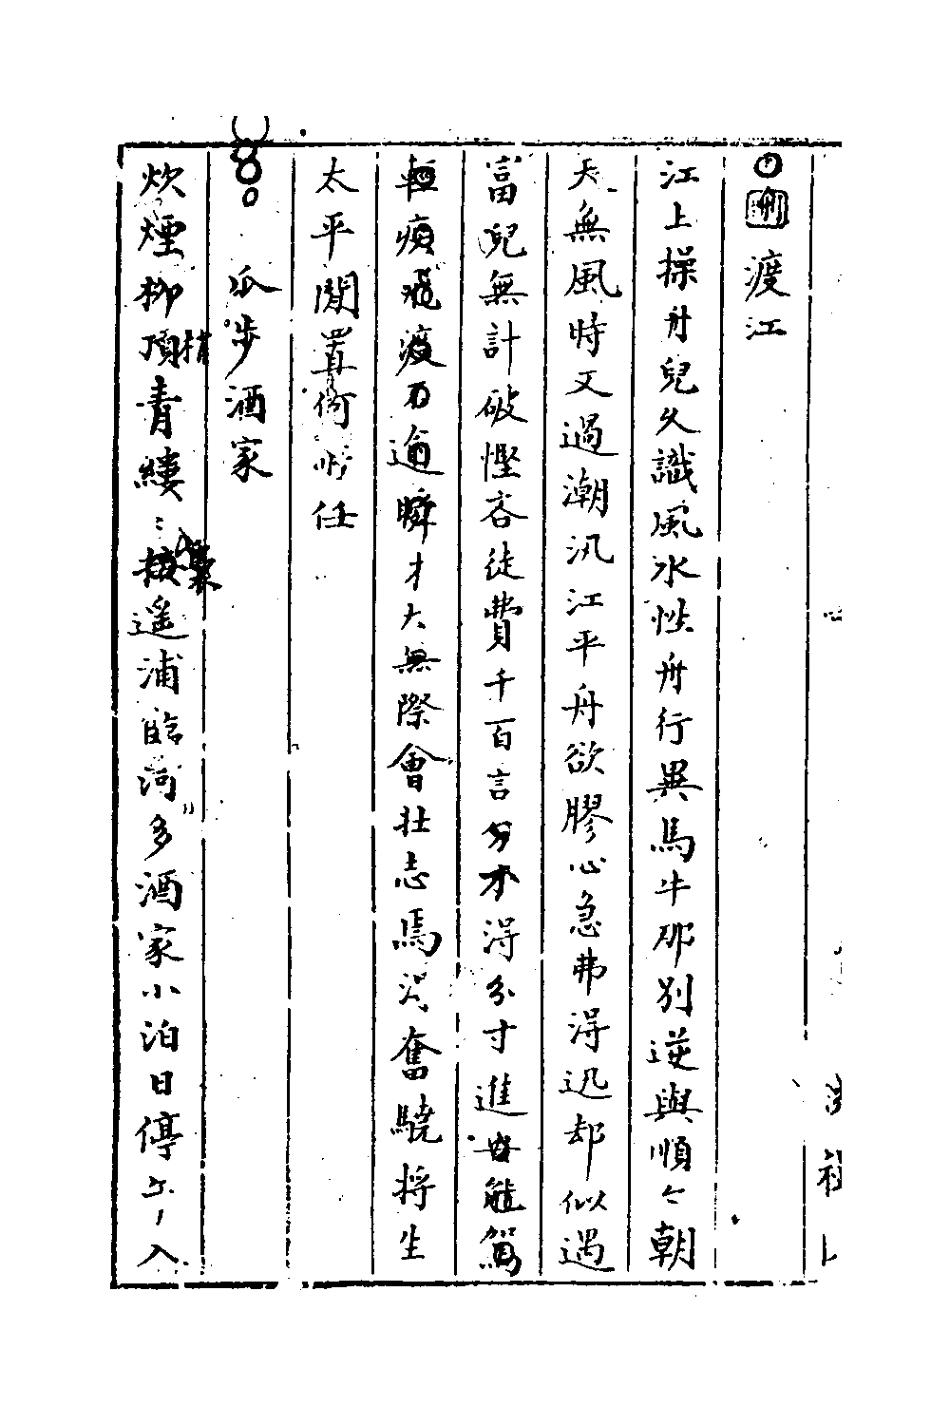 刪 渡江
江上操舟兒久識風水性舟行異馬牛那別逆與順今朝
天無風時又過潮汛江平舟欲膠心急弗得迅却似遇
富兒無計破慳吝徒費千百言分不得分寸進安能駕
輕煩飛渡万逾瞬才大無際會壯志馬省奮驍将生
太平閒置何以任
瓜步酒家
炊煙柳頂梢青縷〻裊遥浦臨河多酒家小泊日停午入